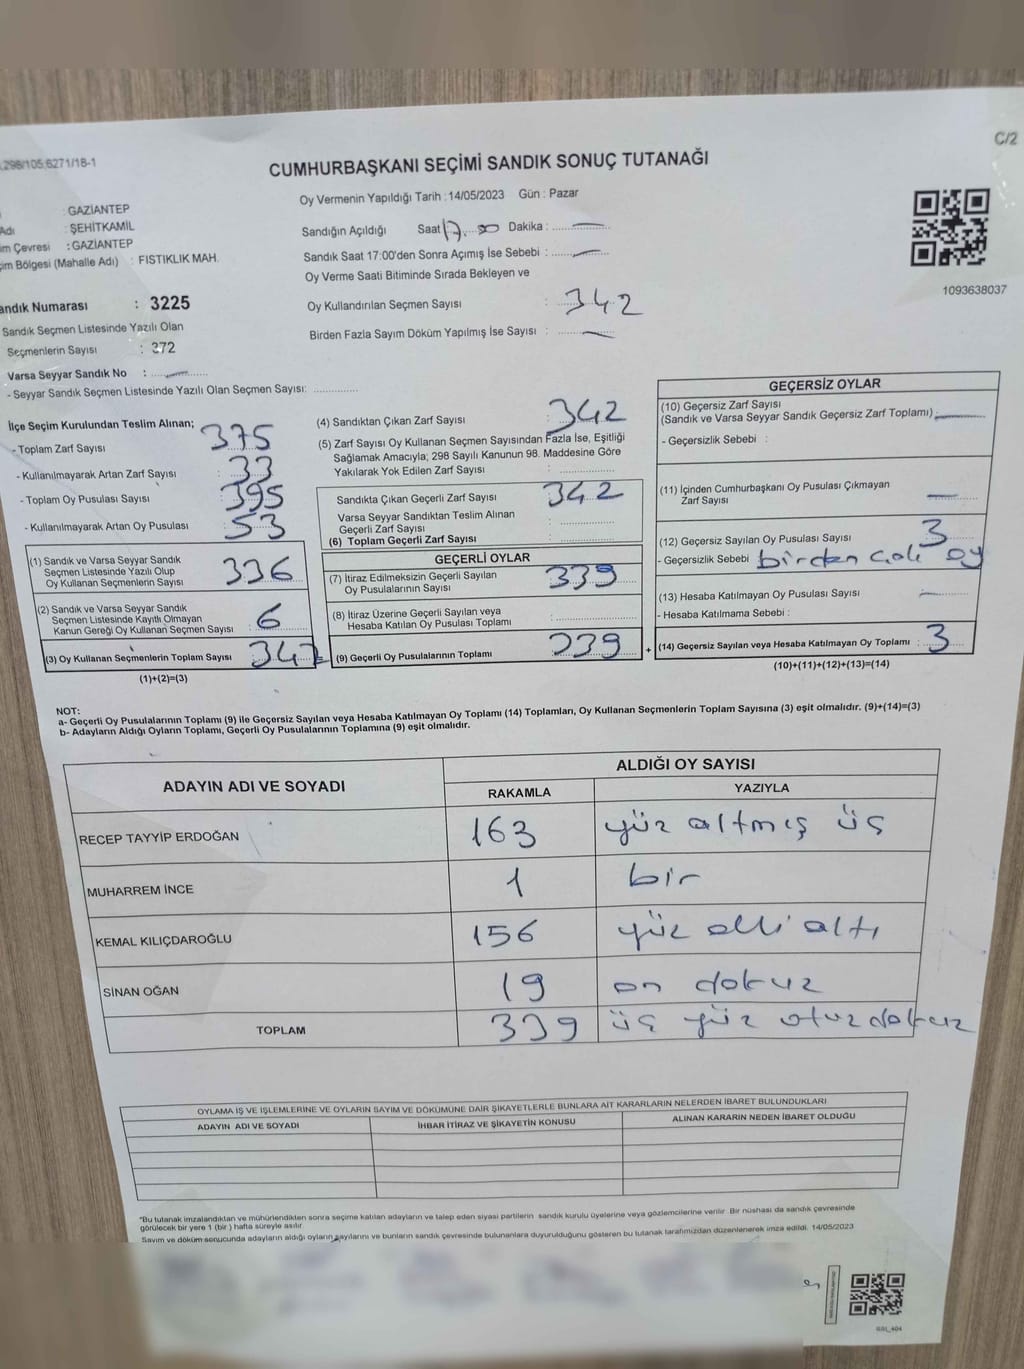 298/105.6271/18-1
C/2
CUMHURBAŞKANI SEÇİMİ SANDIK SONUÇ TUTANAĞI
Oy Vermenin Yapıldığı Tarih : 14/05/2023 Gün : Pazar
: GAZİANTEP
Adı : ŞEHİTKAMİL
im Çevresi : GAZİANTEP
çim Bölgesi (Mahalle Adı) : FISTIKLIK MAH.
andık Numarası : 3225
Sandık Seçmen Listesinde Yazılı Olan
Seçmenlerin Sayısı : 372
Varsa Seyyar Sandık No :
- Seyyar Sandık Seçmen Listesinde Yazılı Olan Seçmen Sayısı:
Sandığın Açıldığı Saat 17.00 Dakika :
Sandık Saat 17:00'den Sonra Açımış İse Sebebi :
Oy Verme Saati Bitiminde Sırada Bekleyen ve
Oy Kullandırılan Seçmen Sayısı : 342
Birden Fazla Sayım Döküm Yapılmış İse Sayısı :
1093638037
İlçe Seçim Kurulundan Teslim Alınan;
- Toplam Zarf Sayısı : 375
- Kullanılmayarak Artan Zarf Sayısı : 33
- Toplam Oy Pusulası Sayısı : 395
- Kullanılmayarak Artan Oy Pusulası : 53
(1) Sandık ve Varsa Seyyar Sandık
Seçmen Listesinde Yazılı Olup
Oy Kullanan Seçmenlerin Sayısı : 336
(2) Sandık ve Varsa Seyyar Sandık
Seçmen Listesinde Kayıtlı Olmayan
Kanun Gereği Oy Kullanan Seçmen Sayısı : 6
(3) Oy Kullanan Seçmenlerin Toplam Sayısı : 342
(1)+(2)=(3)
(4) Sandıktan Çıkan Zarf Sayısı : 342
(5) Zarf Sayısı Oy Kullanan Seçmen Sayısından Fazla İse, Eşitliği
Sağlamak Amacıyla; 298 Sayılı Kanunun 98. Maddesine Göre
Yakılarak Yok Edilen Zarf Sayısı :
Sandıkta Çıkan Geçerli Zarf Sayısı : 342
Varsa Seyyar Sandıktan Teslim Alınan
Geçerli Zarf Sayısı :
(6) Toplam Geçerli Zarf Sayısı :
GEÇERLİ OYLAR
(7) İtiraz Edilmeksizin Geçerli Sayılan
Oy Pusulalarının Sayısı : 339
(8) İtiraz Üzerine Geçerli Sayılan veya
Hesaba Katılan Oy Pusulası Toplamı :
(9) Geçerli Oy Pusulalarının Toplamı : 339 +
GEÇERSİZ OYLAR
(10) Geçersiz Zarf Sayısı
(Sandık ve Varsa Seyyar Sandık Geçersiz Zarf Toplamı)
- Geçersizlik Sebebi :
(11) İçinden Cumhurbaşkanı Oy Pusulası Çıkmayan
Zarf Sayısı
(12) Geçersiz Sayılan Oy Pusulası Sayısı : 3
- Geçersizlik Sebebi birden çok oy
(13) Hesaba Katılmayan Oy Pusulası Sayısı
- Hesaba Katılmama Sebebi :
(14) Geçersiz Sayılan veya Hesaba Katılmayan Oy Toplamı : 3
(10)+(11)+(12)+(13)=(14)
NOT:
a- Geçerli Oy Pusulalarının Toplamı (9) ile Geçersiz Sayılan veya Hesaba Katılmayan Oy Toplamı (14) Toplamları, Oy Kullanan Seçmenlerin Toplam Sayısına (3) eşit olmalıdır. (9)+(14)=(3)
b- Adayların Aldığı Oyların Toplamı, Geçerli Oy Pusulalarının Toplamına (9) eşit olmalıdır.
ADAYIN ADI VE SOYADI ALDIĞI OY SAYISI
RAKAMLA YAZIYLA
RECEP TAYYİP ERDOĞAN 163 yüz altmış üç
MUHARREM İNCE 1 bir
KEMAL KILIÇDAROĞLU 156 yüz elli altı
SİNAN OĞAN 19 on dokuz
TOPLAM 339 üç yüz otuz dokuz
OYLAMA İŞ VE İŞLEMLERİNE VE OYLARIN SAYIM VE DÖKÜMÜNE DAİR ŞİKAYETLERLE BUNLARA AİT KARARLARIN NELERDEN İBARET BULUNDUKLARI
ADAYIN ADI VE SOYADI İHBAR İTİRAZ VE ŞİKAYETİN KONUSU ALINAN KARARIN NEDEN İBARET OLDUĞU
"Bu tutanak imzalandıktan ve mühürlendikten sonra seçime katılan adayların ve talep eden siyasi partilerin sandık kurulu üyelerine veya gözlemcilerine verilir. Bir nüshası da sandık çevresinde
görülecek bir yere 1 (bir) hafta süreyle asılır.
Sayım ve döküm sonucunda adayların aldığı oyların sayılarını ve bunların sandık çevresinde bulunanlara duyurulduğunu gösteren bu tutanak tarafımızdan düzenlenerek imza edildi. 14/05/2023